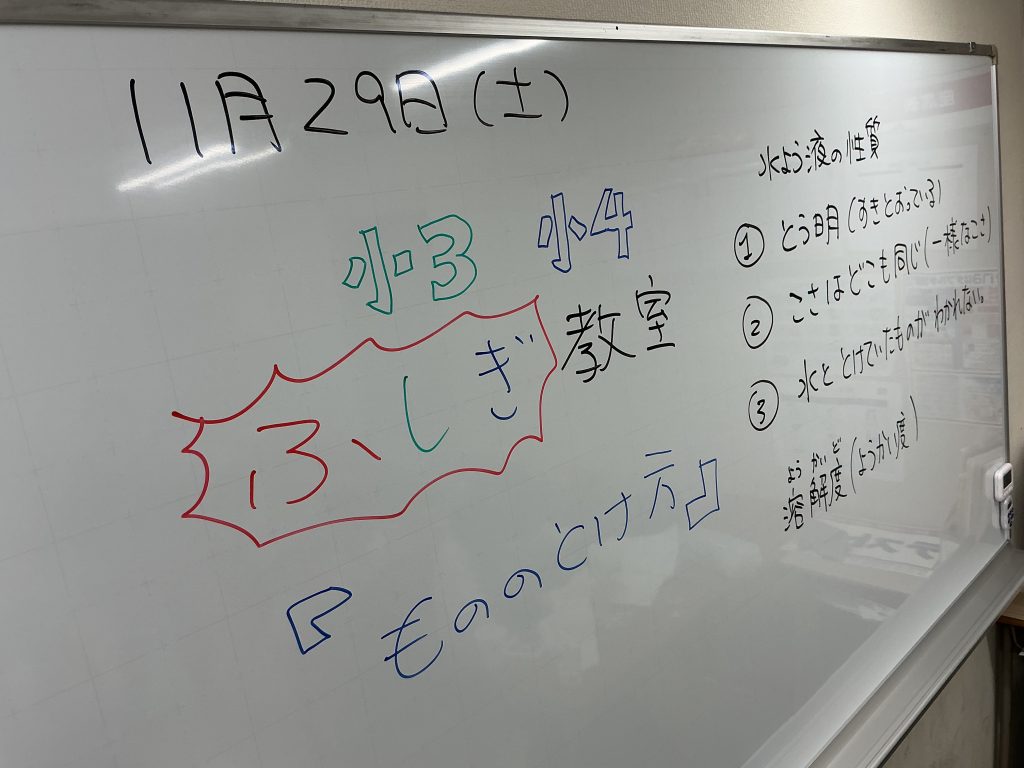 11月29日(土)
小3 小4
ふしぎ教室
『もののとけ方』
水よう液の性質
① とう明(すきとおっている)
② こさはどこも同じ(一様なこさ)
③ 水ととけていたものがわかれない。
ようかいど
溶解度(ようかい度)